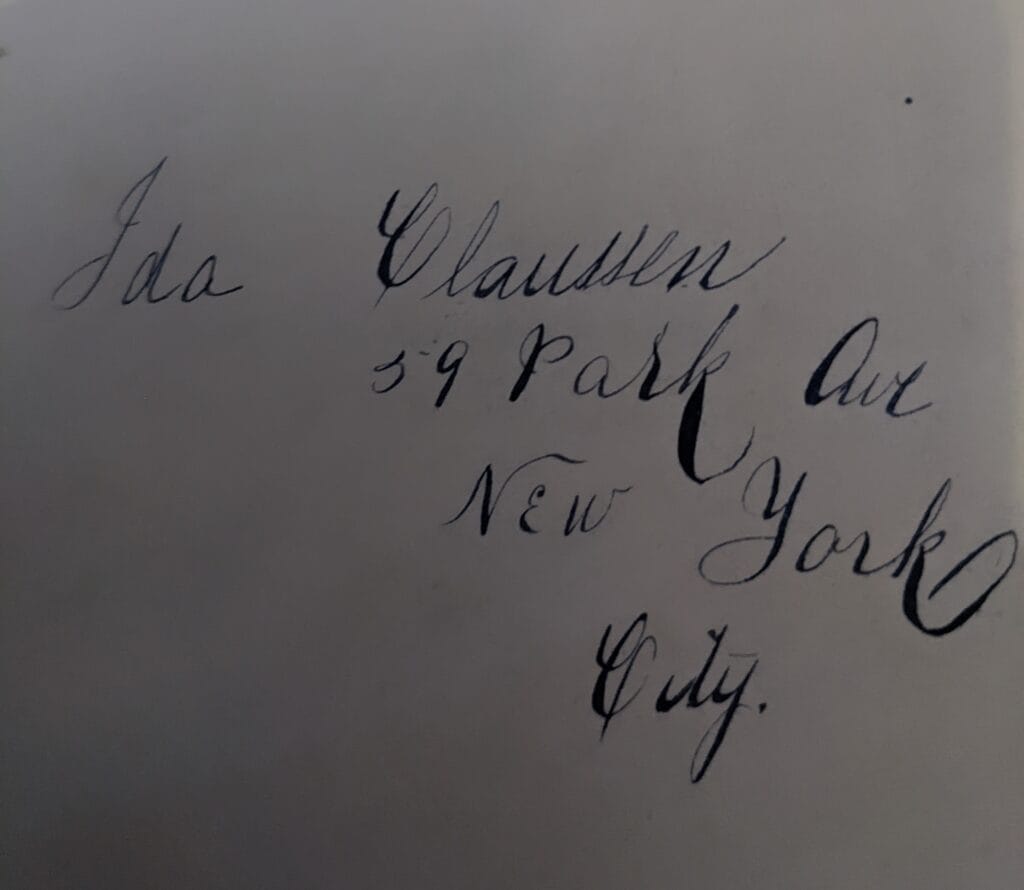 Ida Claussen
59 Park Ave
New York
City.